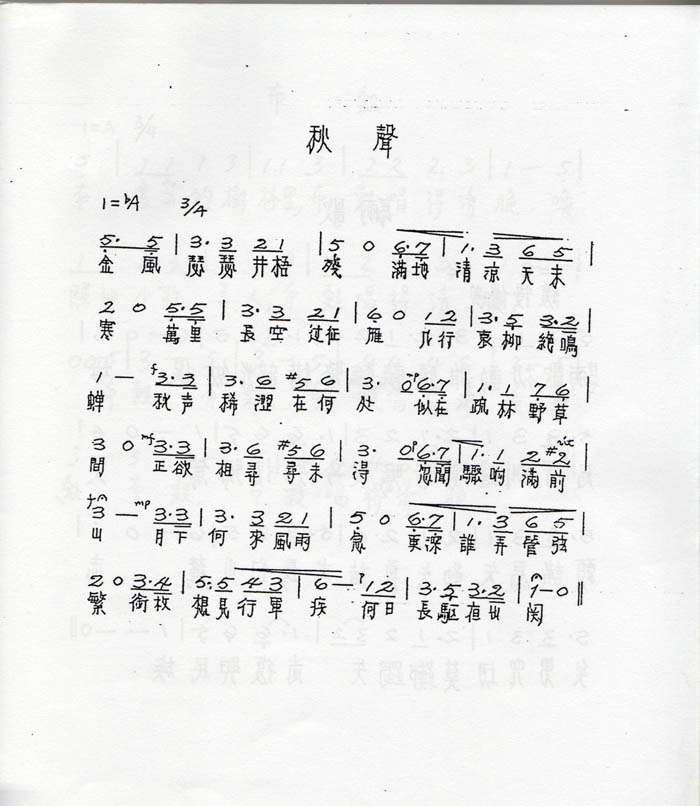 秋 聲
1=♭A 3/4
5. 5 | 3. 3 2 1 | 5 0 6.7 | 1. 3 6 5 |
金 風 瑟 瑟 井 梧 殘 滿 地 清 涼 天 末
2 0 5.5 | 3. 3 2 1 | 6 0 1 2 | 3. 5 3.2 |
寒 萬 里 長 空 过 征 雁 几 行 哀 柳 絶 鳴
1 — f 3.3 | 3. 6 #5 6 | 3. 0 mp 6.7 | 1. 1 7 6 |
蟬 秋 声 稀 澀 在 何 处 似 在 疏 林 野 草
3 0 mf 3.3 | 3. 6 #5 6 | 3. 0 p 6.7 | 1. 1 2 #2 |
間 正 欲 相 尋 尋 未 淂 忽 聞 驟 响 滿 前
3 — mp 3.3 | 3. 3 2 1 | 5 0 6.7 | 1. 3 6 5 |
山 月 下 何 來 風 雨 急 更 深 誰 弄 管 弦
2 0 3.4 | 5. 5 4 3 | 6 — 1 2 | 3. 5 3.2 | 1 — 0 ‖
繁 銜 枚 想 見 行 軍 疾 何 日 長 駆 出 関